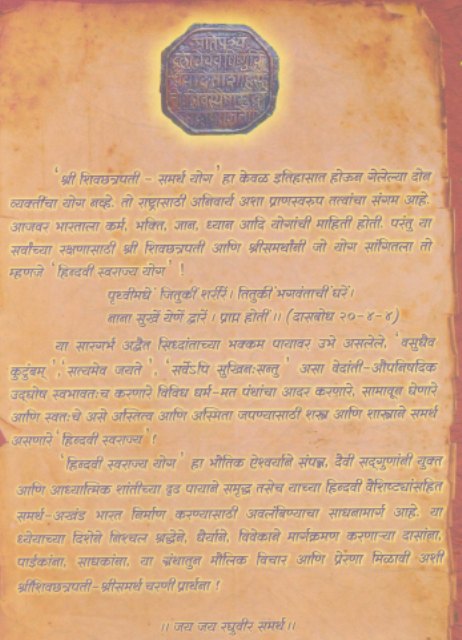 'श्री शिवछत्रपती - समर्थ योग' हा केवळ इतिहासात होऊन गेलेल्या दोन
व्यक्तींचा योग नव्हे. तो राष्ट्रासाठी अनिवार्य अशा प्राणस्वरुप तत्वांचा संगम आहे.
आजवर भारताला कर्म, भक्ति, ज्ञान, ध्यान आदि योगांची माहिती होती. परंतु या
सर्वांच्या रक्षणासाठी श्री शिवछत्रपती आणि श्रीसमर्थांनी जो योग सांगितला तो
म्हणजे 'हिन्दवी स्वराज्य योग' !
पृथ्वीमधें जितुकीं शरीरें। तितुकीं भगवंताचीं घरें।
नाना सुखें येणें द्वारें। प्राप्त होती ।। (दासबोध २०-४-४)
या सारगर्भ अद्वैत सिध्दांताच्या भक्कम पायावर उभे असलेले, 'वसुधैव
कुटुंबम्', 'सत्यमेव जयते', 'सर्वेऽपि सुखिनःसन्तु' असा वेदांती-औपनिषदिक
उद्घोष स्वभावतःच करणारे विविध धर्म-मत पंथांचा आदर करणारे, सामावून घेणारे
आणि स्वतःचे असे अस्तित्व आणि अस्मिता जपण्यासाठी शस्त्र आणि शास्त्राने समर्थ
असणारे 'हिन्दवी स्वराज्य' !
'हिन्दवी स्वराज्य योग' हा भौतिक ऐश्वर्याने संपन्न, दैवी सद्गुणांनी युक्त
आणि आध्यात्मिक शांतीच्या दृढ पायाने समृद्ध तसेच याच्या हिन्दवी वैशिष्ट्यांसहित
समर्थ-अखंड भारत निर्माण करण्यासाठी अवलंबिण्याचा साधनामार्ग आहे. या
ध्येयाच्या दिशेने निश्चल श्रद्धेने, धैर्याने, विवेकाने मार्गक्रमण करणाऱ्या दासांना,
पाईकांना, साधकांना, या ग्रंथातुन मौलिक विचार आणि प्रेरणा मिळावी अशी
श्रीशिवछत्रपती-श्रीसमर्थ चरणी प्रार्थना !
।। जय जय रघुवीर समर्थ ।।